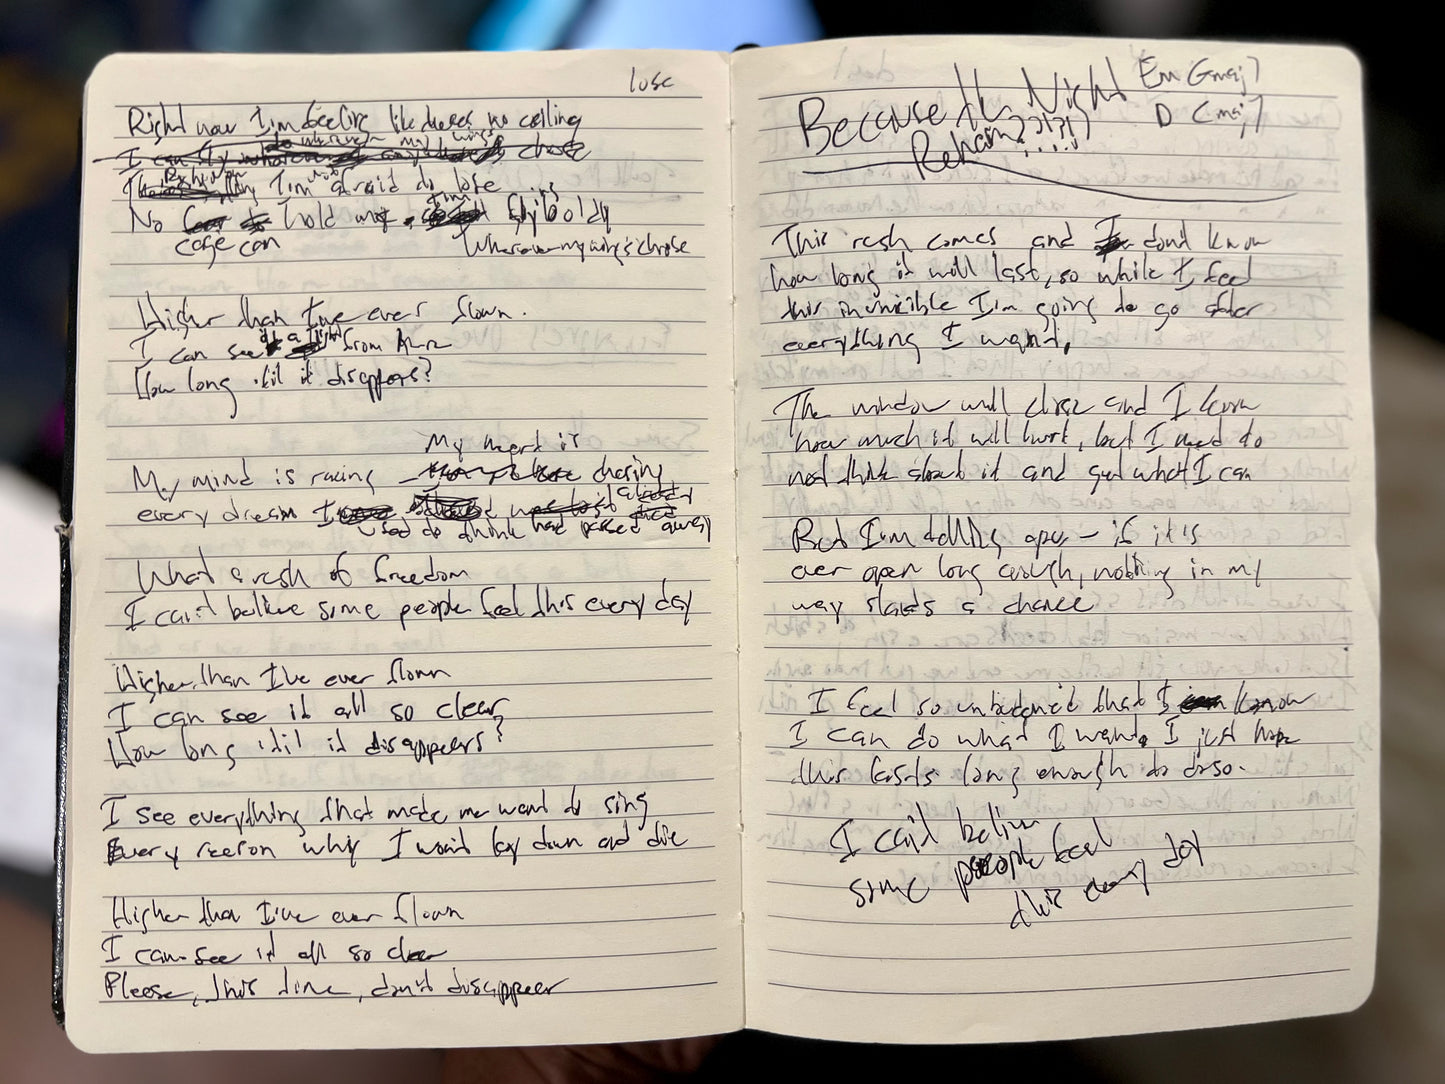 lose
Right now I'm feeling like there's no ceiling
I can fly chose
I'm not afraid to lose
No cage can hold me flying boldly
Wherever my wings chose
Higher than I've ever flown.
I can see it a light from here
How long 'til it disappears?
My heart is
My mind is racing chasing
every dream I
used to think had passed away
What a rush of freedom
I can't believe some people feel this every day
Higher than I've ever flown
I can see it all so clear,
How long 'til it disappears?
I see everything that made me want to sing
Every reason why I won't lay down and die
Higher than I've ever flown
I can see it all so clear
Please, this time, don't disappear
Because the Night Em Gmaj7
D Cmaj7
This rush comes and I don't know
how long it will last, so while I feel
this invincible I'm going to go after
everything I want.
The window will close and I know
how much it will hurt, but I need to
not think about it and get what I can
But I'm telling you - if it's
ever open long enough, nothing in my
way stands a chance
I feel so unburdened that I know
I can do what I want. I just hope
this lasts long enough to do so.
I can't believe
some people feel
this every day